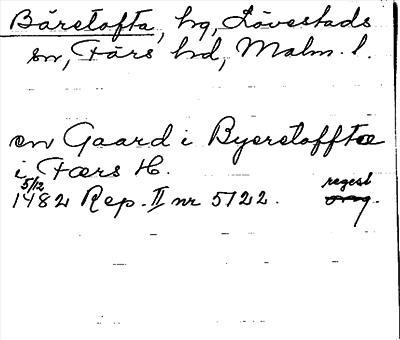 Bärstofta, hg, Lövestads
sn, Färs hd, Malm. l.
en Gaard i Byerstofftæ
i Færs H.
5/12
1482 Rep. II nr 5122. regest
org.